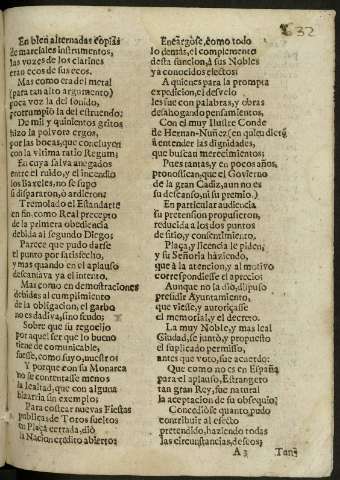 632
En blen alternadas copias
de marciales instrumentos,
las vozes de los clarines
eran ecos de sus ecos.
Mas como era del metal
(para tan alto argumento)
poca voz la del sonido,
prorrumpiò la del estruendo;
De mil y quinientos gritos
hizo la polvora ergos,
por las bocas, que concluyen
con la vltima ratio Regum;
En cuya salva anegados
entre el ruido, y el incendio
los Baxeles, no se supo
si dispararon, ò ardieron;
Tremolado el Estandarte
en fin, como Real precepto
de la primera obediencia
debida al segundo Diego:
Parece que pudo darse
el punto por satisfecho,
y mas quando en el aplauso
descansava ya el intento.
Mas como en demostraciones
debidas al cumplimiento
de la obligacion, el garbo
no es dadiva, sino feudo;
Sobre que su regocijo
por aquel ser que lo bueno
tiene de comunicable,
fuesse, como suyo, nuestros
Y porque con su Monarca
no se contentasse menos
la lealtad, que con alguna
bizarria sin exemplo;
Para costear nuevas Fiestas
publicas de Toros sueltos
su Plaça cerrada, diò
la Nacion credito abierto;
Encargòse, como todo
lo demás, el complemento
desta funcion, à sus Nobles
ya conocidos efectos;
A quienes para la prompta
expedicion, el desvelo
les fue con palabras, y obras
desahogando pensamientos,
Con el muy Ilustre Conde
de Hernan-Nuñez (en quien dictè
ñ entender las dignidades,
que buscan merecimientos;
Pues tantas, y en pocos años,
pronostican, que el Govierno
de la gran Cadiz, aun no es
su descanso, ni su premio.)
En particular audiencia
su pretension propusieron,
reducida a los dos puntos
de sitio, y consentimiento.
Plaça, y licencia le piden;
y su Señoria haziendo,
que à la atencion, y al motivo
correspondiesse el aprecio:
Aunque no la diò, dispuso
presidir Ayuntamiento,
que viesse, y autorizasse
el memorial, y el decreto.
La muy Noble, y mas leal
Ciudad, se juntò, y propuesto
el suplicado permisso,
antes que voto, fue acuerdo:
Que como no es en España
para el aplauso, Estrangero
tan gran Rey, fue natural
la aceptacion de su obsequio;
Concediòse quanto, pudo
contribuir al efecto
pretendido, haziendo todas
las circunstancias, deseos;
A 3
Tanq̃